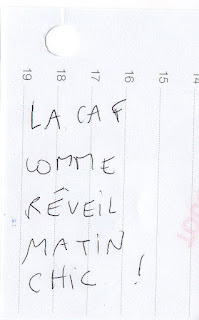 19 18 17 16 15 14
LA CAF
COMME
RÉVEIL
MATIN
CHIC !